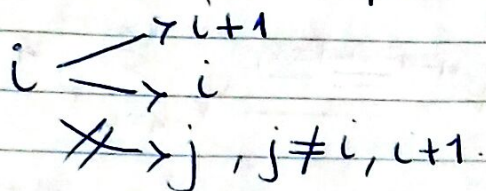 i → i+1
→ i
↛ j, j≠i, i+1.